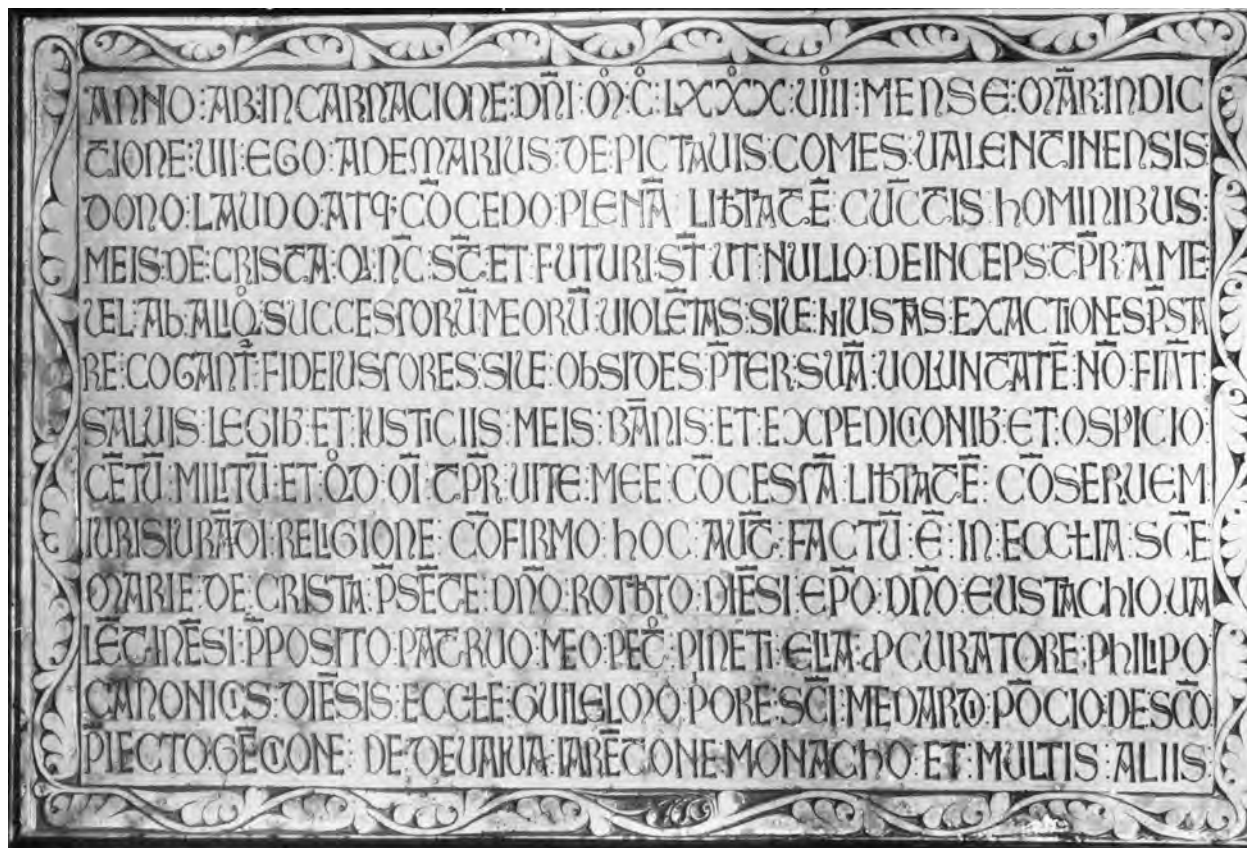 ANNO : AB : INCARNACIONE : DÑI : M̊ : C̊ : LXX̊X : VIII̊ : MENSE : MĀR : INDIC
TIONE : VII : EGO : ADEMARIUS : DE PICTAVIS : COMES : VALENTINENSIS :
DONO : LAUDO : ATQ : CŌCEDO : PLENĀ LIƀTATĒ CŪCTIS hOMINIBUS :
MEIS : DE : CRISTA : QI : N̄C : S̄T : ET FUTURI : S̄T UT : NULLO : DEINCEPS : TP̄R : A ME
VEL : Ab : ALIQ̊ : SUCCESSORŪ : MEORŪ : VIOLĒTAS : SIVE : INIUSTAS : EXACTIONES : P̄STA
RE : COGANT̄ : FIDEIUSSORES : SIVE : ObSIDES : P̄TER : SUĀ : VOLUNTATĒ : NŌ : FIĀT :
SALVIS : LEGIB : ET : IUSTICIIS : MEIS : BĀNIS : ET : EXPEDICIONIB : ET : OSPICIO :
CĒTŪ : MILITŪ : ET : Q̊D : OĪ : TP̄R : VITE : MEE : CŌCESSĀ : LIƀTATĒ : CŌSERVEM
IURISIURĀDI : RELIGIONE : CŌFIRMO : hOC : AUT̄ : FACTŪ : Ē : IN : ECCłIA : SC̄E
MARIE : DE : CRISTA : P̄SĒTE : DÑO : ROTƀTO : DIĒSI : EP̄O : DÑO : EUSTAChIO : VA
LĒTINĒSI : P̄POSITO : PATRUO : MEO : PET̊ : PINETI : ELIA : PCURATORE : PhILIPO :
CANONICIS : DIĒSIS : ECCłE : GUILELMO : P̊ORE : SC̄I : MEDARDI : PŌCIO : DE SC̄O
P̄IECTO : GĒCIONE : DE : DEVAIUA : IARĒTONE : MONAChO : ET : MULTIS : ALIIS :